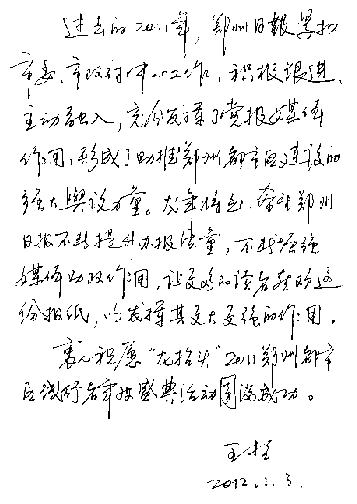 过去的2011年，郑州日报紧扣
市委、市政府中心工作，积极跟进、
主动融入，充分发挥了党报媒体
作用，形成了助推郑州都市区建设的
强大舆论力量。龙年将至，希望郑州
日报不断提升办报质量，不断增强
媒体助政作用，让更多的读者喜欢这
份报纸，以发挥其更大更强的作用。
衷心祝愿“龙抬头”2011郑州都市
区 年度盛典活动圆满成功。
王
2012.